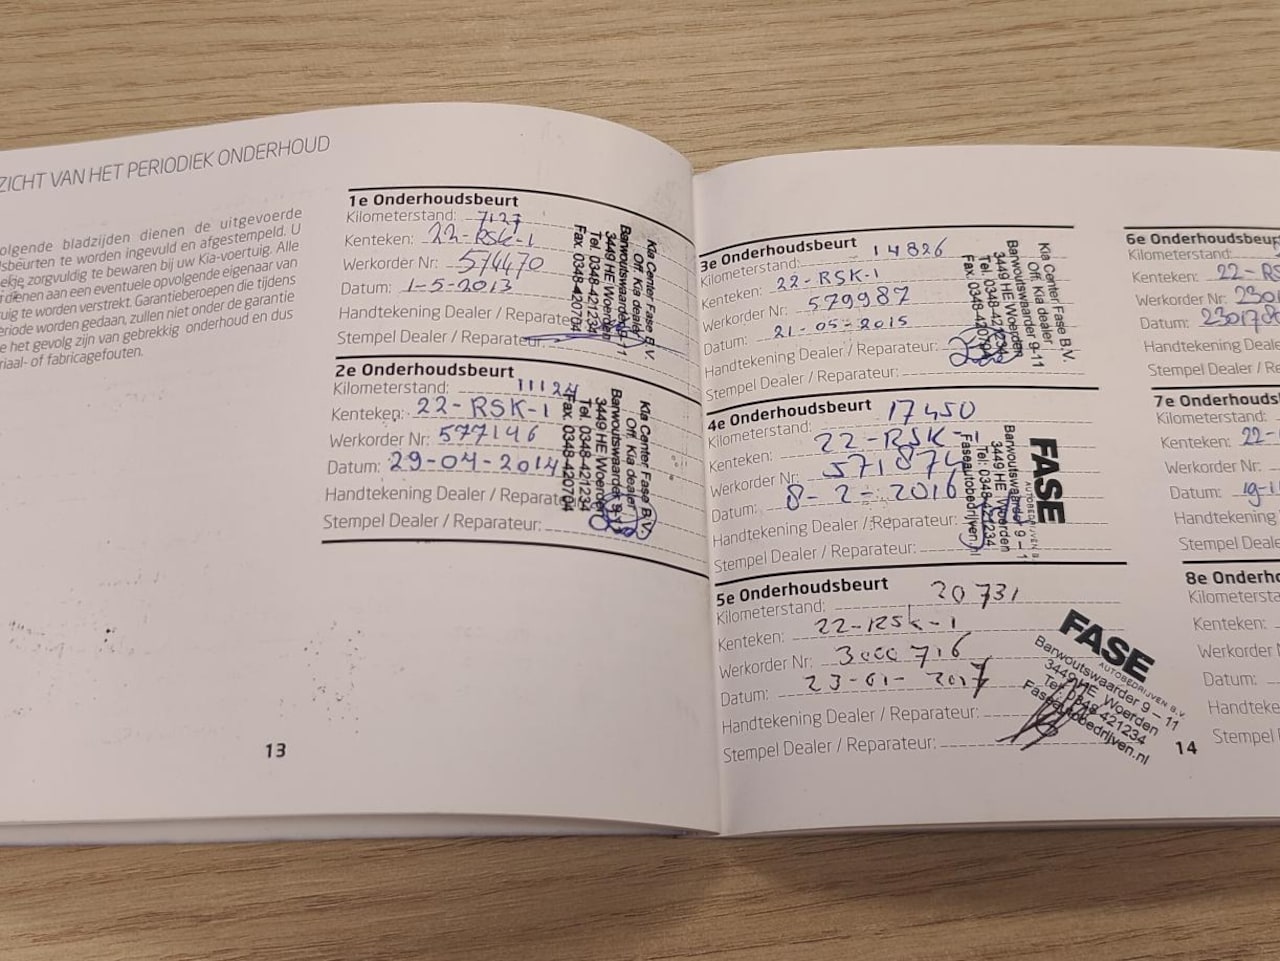 ZICHT VAN HET PERIODIEK ONDERHOUD
olgende bladzijden dienen de uitgevoerde
lsbeurten te worden ingevuld en afgestempeld. U
ekje zorgvuldig te bewaren bij uw Kia-voertuig. Alle
dienen aan een eventuele opvolgende eigenaar van
uig te worden verstrekt. Garantieberoepen die tijdens
eriode worden gedaan, zullen niet onder de garantie
e het gevolg zijn van gebrekkig onderhoud en dus
riaal- of fabricagefouten.
1e Onderhoudsbeurt
Kilometerstand: 7127
Kenteken: 22-RSK-1
Werkorder Nr: 574470
Datum: 1-5-2013
Handtekening Dealer / Reparate
Stempel Dealer / Reparateur:
Kia Center Fase B.V.
Off. Kia dealer
Barwoutswaarder 9-11
3449 HE Woerden
Tel. 0348-421234
Fax. 0348-420704
2e Onderhoudsbeurt
Kilometerstand: 11124
Kenteken: 22-RSK-1
Werkorder Nr: 577146
Datum: 29-04-2014
Handtekening Dealer / Reparate
Stempel Dealer / Reparateur:
Kia Center Fase B.V.
Off. Kia dealer
Barwoutswaarder 9-11
3449 HE Woerden
Tel. 0348-421234
Fax. 0348-420704
13
3e Onderhoudsbeurt
Kilometerstand: 14826
Kenteken: 22-RSK-1
Werkorder Nr: 579987
Datum: 21-05-2015
Handtekening Dealer / Reparateur:
Stempel Dealer / Reparateur:
Kia Center Fase B.V.
Off. Kia dealer
Barwoutswaarder 9-11
3449 HE Woerden
Tel. 0348-421234
Fax. 0348-420704
4e Onderhoudsbeurt
Kilometerstand: 17450
Kenteken: 22-RSK-
Werkorder Nr:
Datum: 8-2-2016
Handtekening Dealer / Reparateur:
Stempel Dealer / Reparateur:
FASE
AUTOBEDRIJVEN B.
Barwoutswaarder 9 – 11
3449 HE Woerden
Tel: 0348-421234
Faseautobedrijven.nl
5e Onderhoudsbeurt
Kilometerstand: 20731
Kenteken: 22-RSK-1
Werkorder Nr: 3000716
Datum: 23-01-2017
Handtekening Dealer / Reparateur:
Stempel Dealer / Reparateur:
FASE
AUTOBEDRIJVEN B.V.
Barwoutswaarder 9 – 11
3449 HE Woerden
Tel. 0348 421234
Faseautobedrijven.nl
14
6e Onderhoudsbeur
Kilometerstand:
Kenteken: 22-RS
Werkorder Nr: 2301
Datum: 230170
Handtekening Deale
Stempel Dealer / Re
7e Onderhouds
Kilometerstand:
Kenteken: 22-
Werkorder Nr:
Datum: 19-1
Handtekening
Stempel Deale
8e Onderho
Kilometersta
Kenteken:
Werkorder N
Datum:
Handteke
Stempel